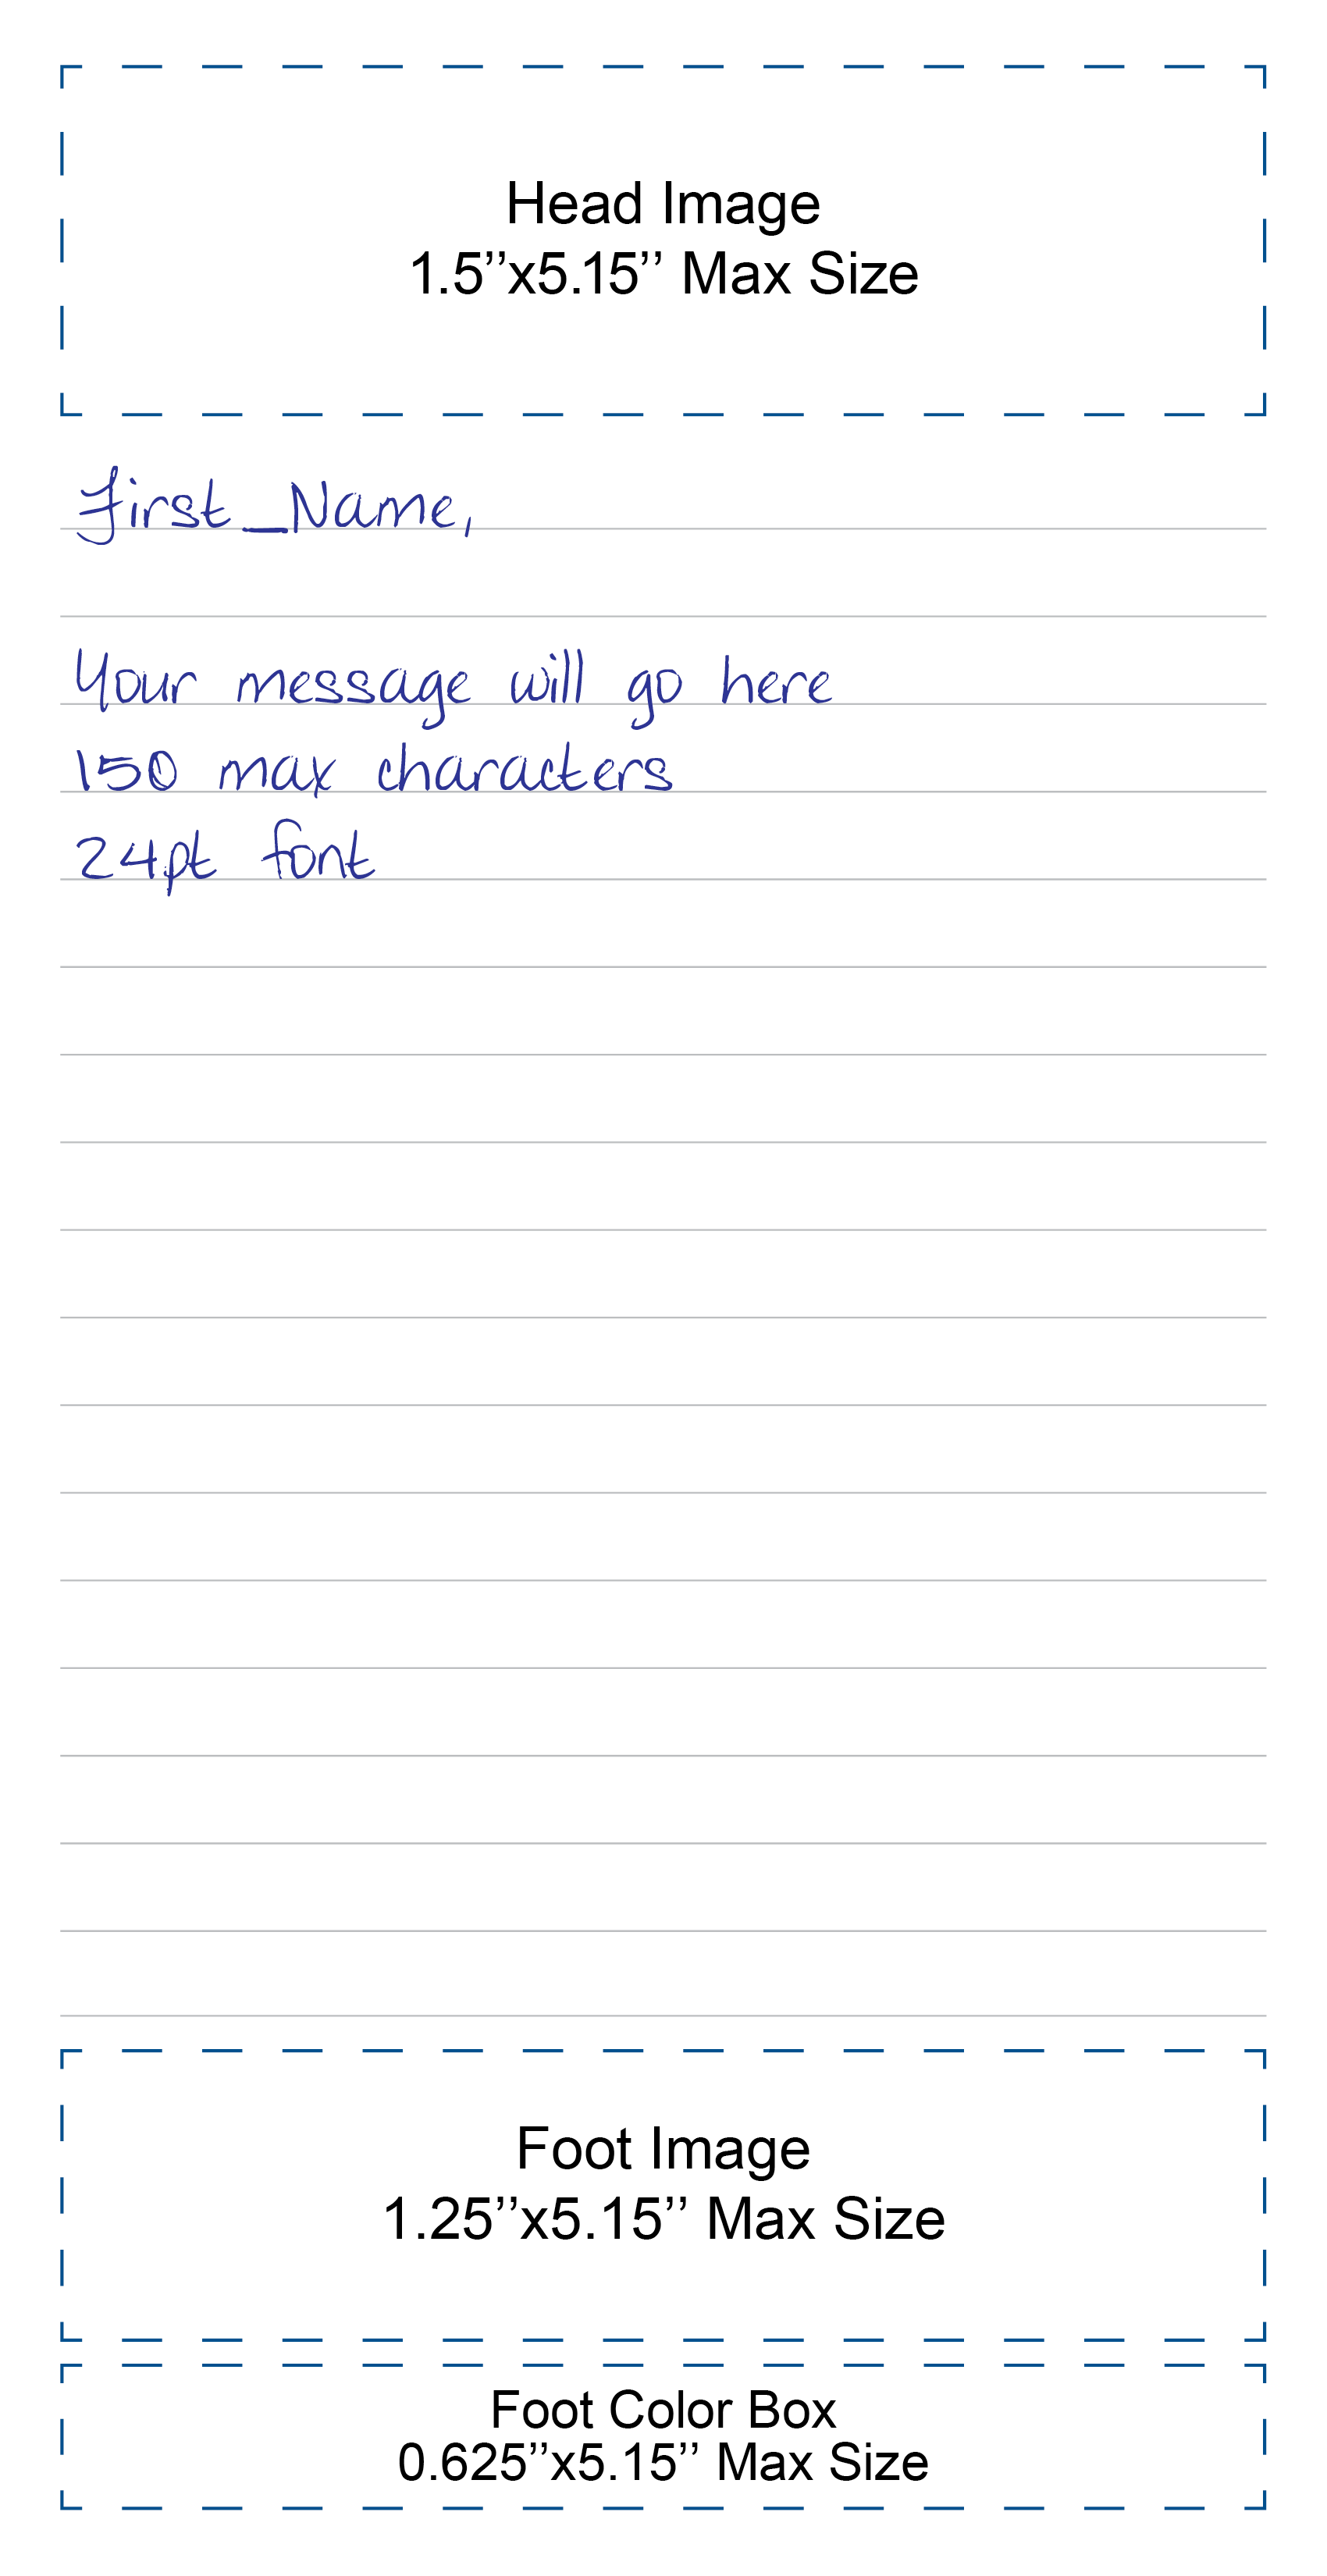 Head Image
1.5’’x5.15’’ Max Size
First_Name,
Your message will go here
150 max characters
24pt font
Foot Image
1.25’’x5.15’’ Max Size
Foot Color Box
0.625’’x5.15’’ Max Size